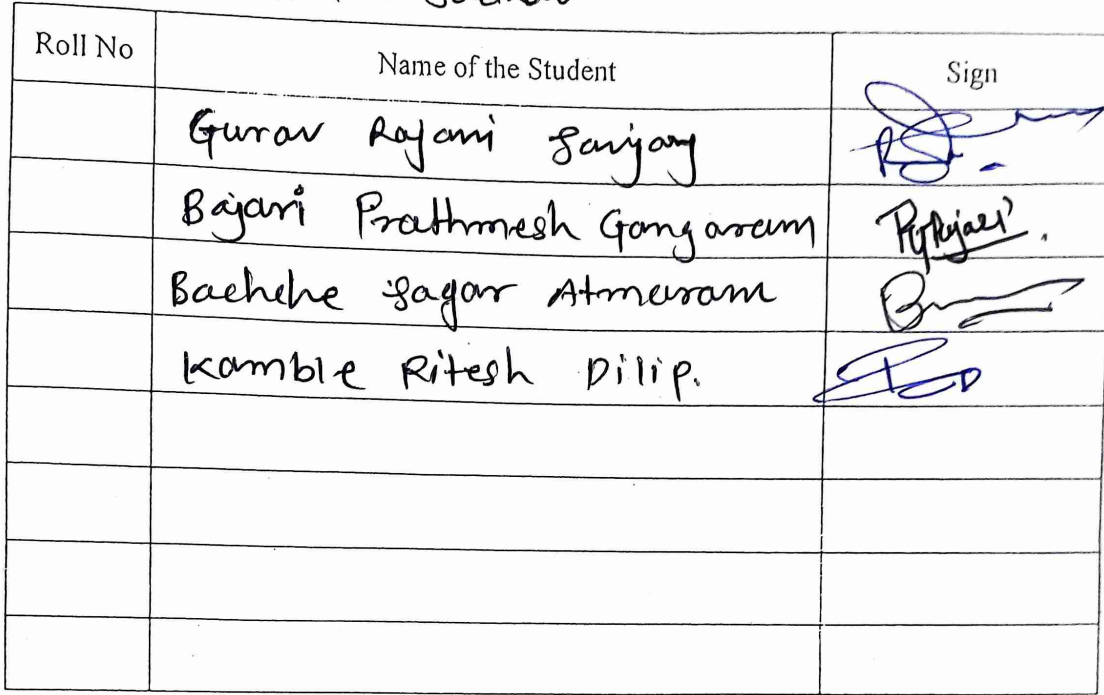 Roll No Name of the Student Sign
Gurav Rajani Sanjay
Bajari Prathmesh Gangaram
Bachche Sagar Atmaram
Kamble Ritesh Dilip.